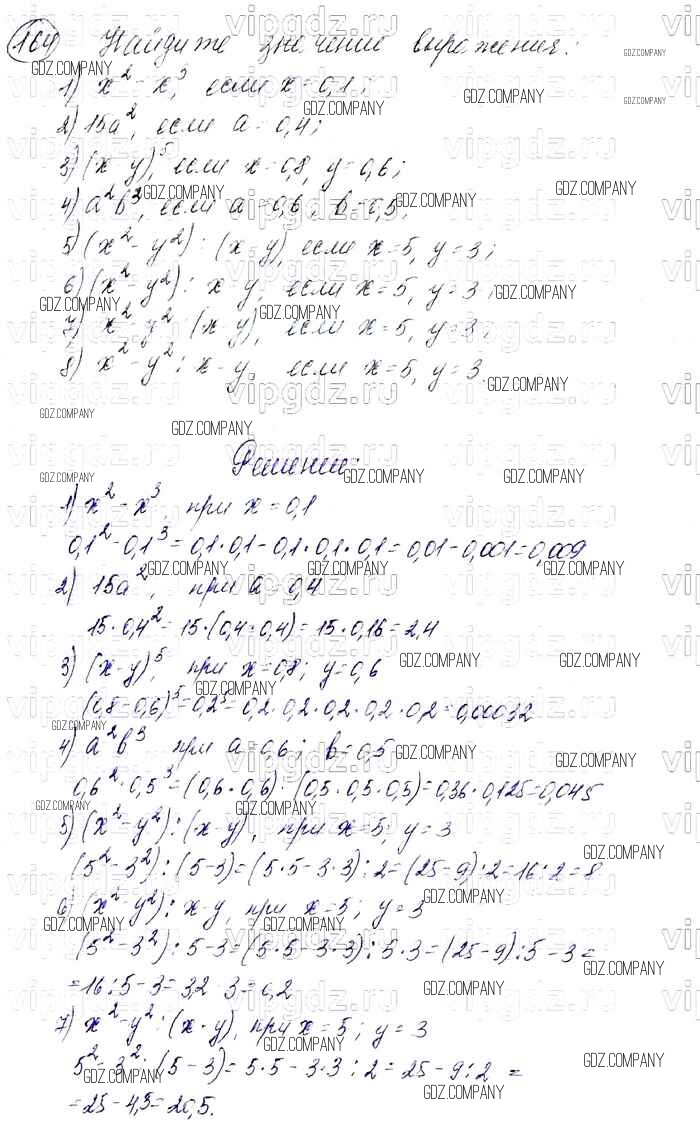 164 Найдите значение выражения:
1) x² - x³, если x = 0,1;
2) 15a², если a = 0,4;
3) (x-y)⁵, если x = 0,8, y = 0,6;
4) a²b³, если a = 0,6, b = 0,5;
5) (x² - y²) : (x - y), если x = 5, y = 3;
6) (x² - y²) : x - y, если x = 5, y = 3;
7) x² - y² : (x - y), если x = 5, y = 3;
8) x² - y² : x - y, если x = 5, y = 3.
Решение:
1) x² - x³, при x = 0,1
0,1² - 0,1³ = 0,1·0,1 - 0,1·0,1·0,1 = 0,01 - 0,001 = 0,009
2) 15a², при a = 0,4
15·0,4² = 15·(0,4·0,4) = 15·0,16 = 2,4
3) (x-y)⁵, при x = 0,8; y = 0,6
(0,8-0,6)⁵ = 0,2⁵ = 0,2·0,2·0,2·0,2·0,2 = 0,00032
4) a²b³ при a = 0,6; b = 0,5
0,6²·0,5³ = (0,6·0,6)·(0,5·0,5·0,5) = 0,36·0,125 = 0,045
5) (x² - y²) : (x - y), при x = 5, y = 3
(5² - 3²) : (5 - 3) = (5·5 - 3·3) : 2 = (25 - 9) : 2 = 16 : 2 = 8
6) (x² - y²) : x - y, при x = 5; y = 3
(5² - 3²) : 5 - 3 = (5·5 - 3·3) : 5 - 3 = (25 - 9) : 5 - 3 =
= 16 : 5 - 3 = 3,2 - 3 = 0,2
7) x² - y² : (x - y), при x = 5; y = 3
5² - 3² : (5 - 3) = 5·5 - 3·3 : 2 = 25 - 9 : 2 =
= 25 - 4,5 = 20,5.
GDZ.COMPANY
vipgdz.ru